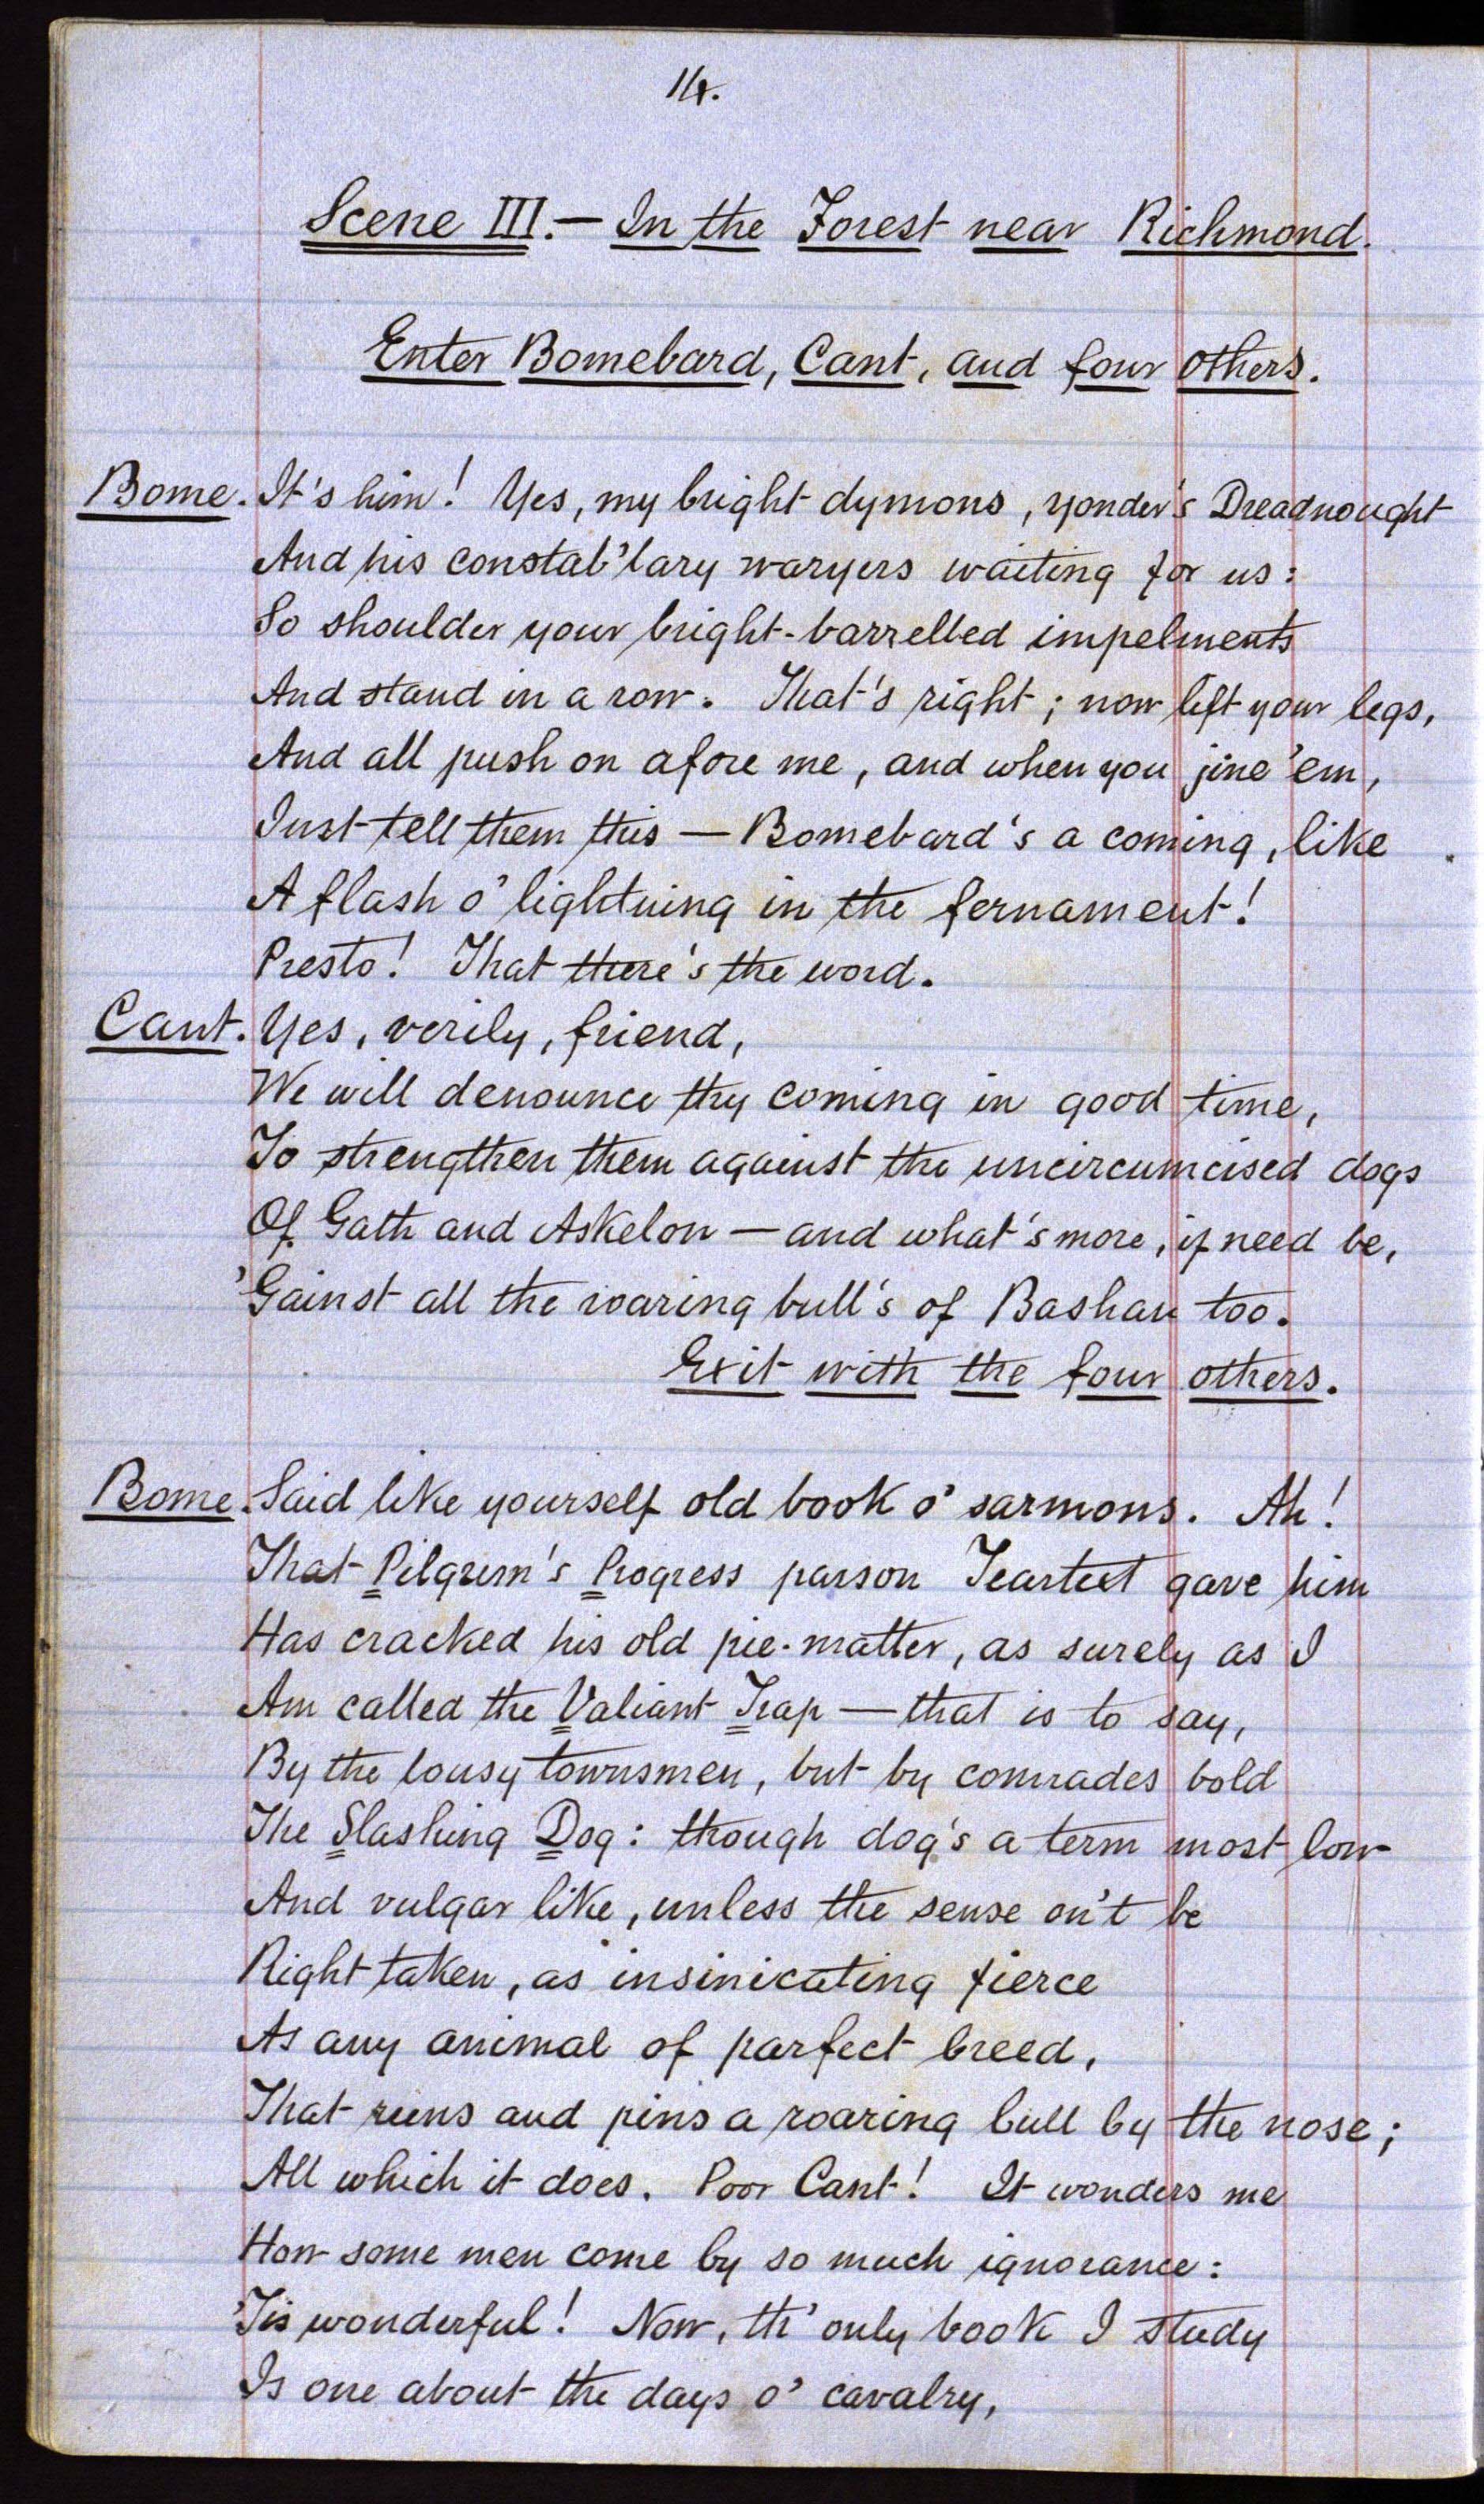 14.
Scene III.— In the Forest near Richmond.
Enter Bomebard, Cant, and four others.
Bome. It's him! Yes, my bright dymons, yonder's Dreadnought
And his constab'lary waryers waiting for us:
So shoulder your bright-barrelled impelments
And stand in a row. That's right; now left your legs,
And all push on afore me, and when you jine 'em,
Just tell them this — Bomebard's a coming, like
A flash o' lightning in the fernament!
Presto! That there's the word.
Cant. Yes, verily, friend,
We will denounce thy coming in good time,
To strengthen them against the uncircumcised dogs
Of Gath and Askelon — and what's more, if need be,
'Gainst all the roaring bull's of Bashan too.
Exit with the four others.
Bome. Said like yourself old book o' sarmons. Ah!
That Pilgrim's Progress parson Teartext gave him
Has cracked his old pie-matter, as surely as I
Am called the Valiant Trap — that is to say,
By the lousy townsmen, but by comrades bold
The Slashing Dog: though dog's a term most low
And vulgar like, unless the sense on't be
Right taken, as insinicating fierce
As any animal of parfect breed,
That runs and pins a roaring bull by the nose;
All which it does. Poor Cant! It wonders me
How some men come by so much ignorance:
'Tis wonderful! Now, th' only book I study
Is one about the days o' cavalry,